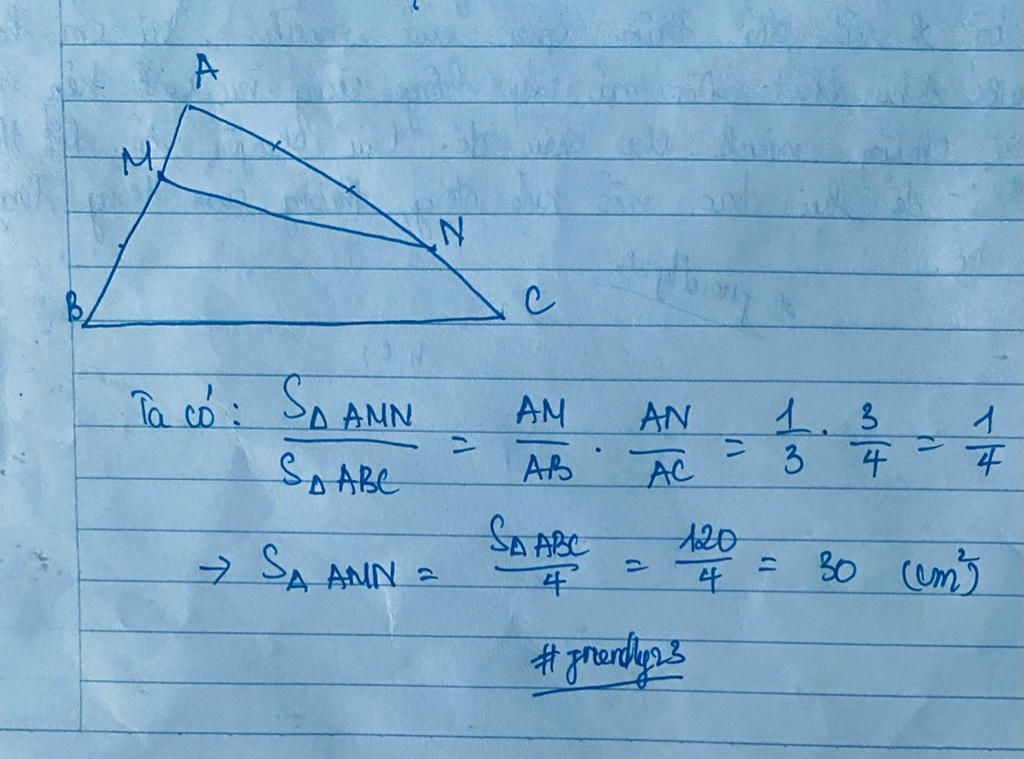 A
M
N
B
C
Ta có: S∆AMN / S∆ABC = AM/AB . AN/AC = 1/3 . 3/4 = 1/4
→ S∆AMN = S∆ABC/4 = 120/4 = 30 (cm²)